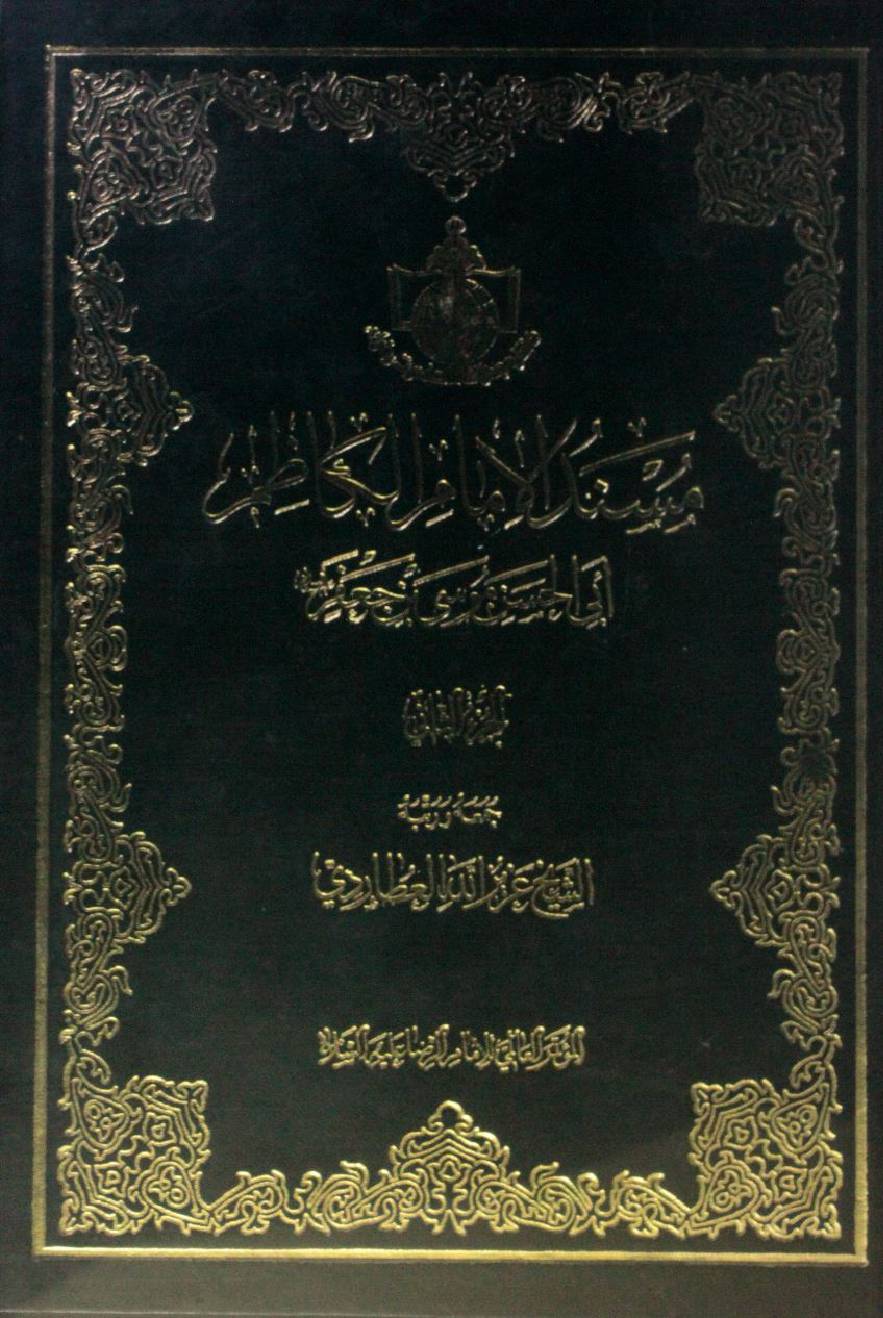 مُسْنَدُ الإِمَامِ الكَاظِمِ
أبي الحسن موسى بن جعفر
الجزء الثاني
جمعه ورتبه
الشيخ عزيز الله العطاردي
المؤتمر العالمي للإمام الرضا عليه السلام